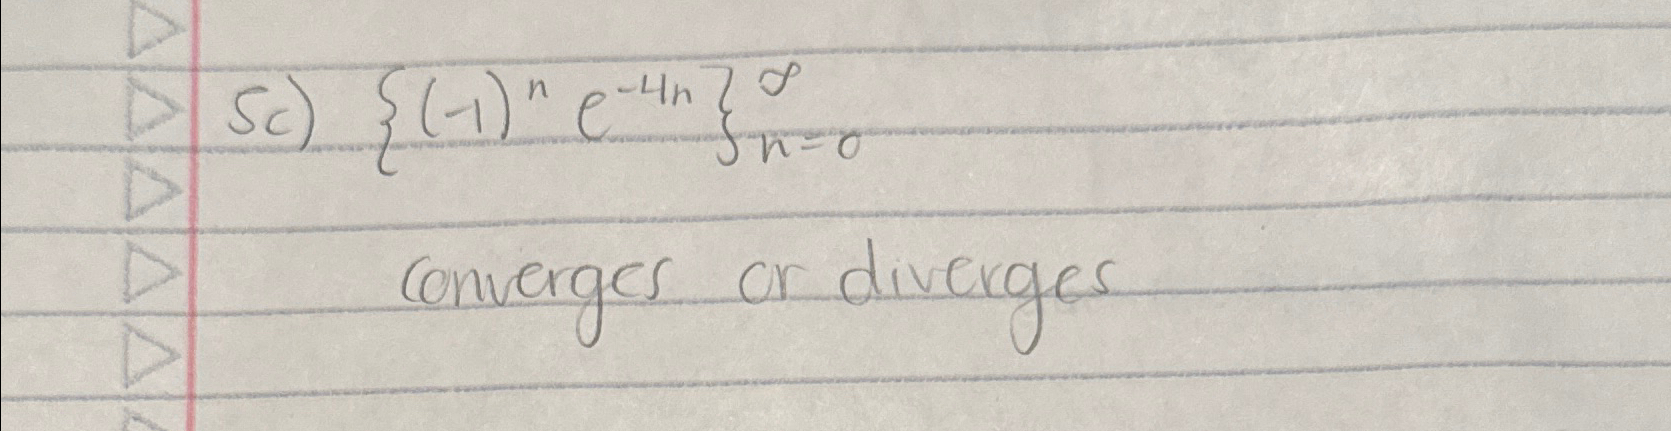 5c) {(-1)ⁿ e⁻⁴ⁿ}∞n=0
converges or diverges